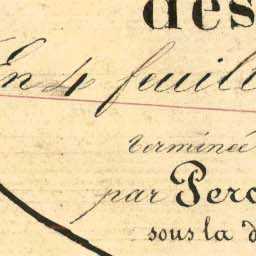 des
En 4 feuill
terminée
par Perc
sous la d